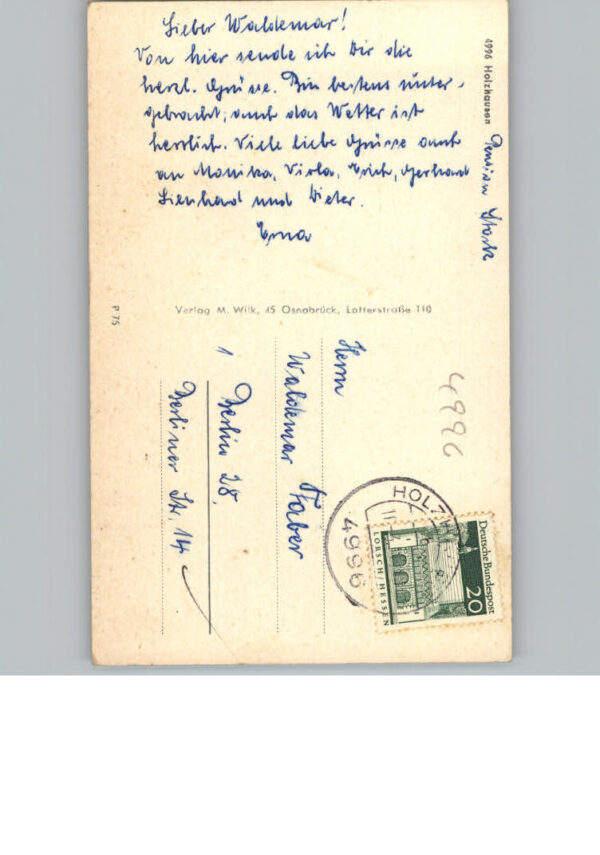 Lieber Waldemar!
Von hier sende ich Dir die
herzl. Grüsse. Bin bestens unter-
gebracht, auch das Wetter ist
herrlich. Viele liebe Grüsse auch
an Monika, Viola, Erich, Gerhard
Lienhard und Dieter.
Erna
4996 Holzhausen Pension Stork
Verlag M. Wilk, 45 Osnabrück, Lotterstraße 110
P 75
Herrn
Waldemar Faber
1 Berlin 28.
Berliner Str. 14
4996
HOLZH
4996
Deutsche Bundespost
20
LORSCH/HESSEN